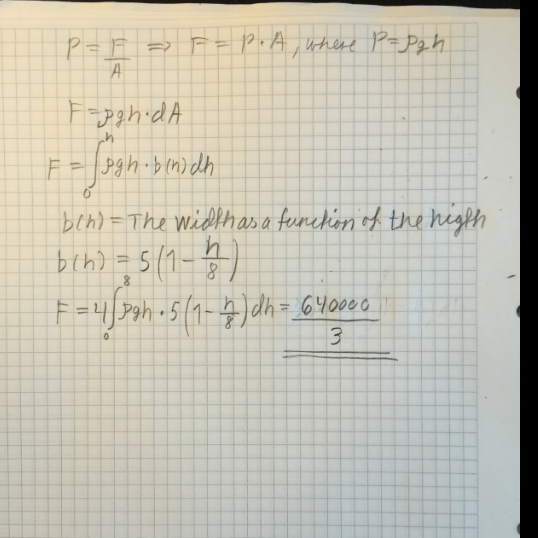 P = F/A ⇒ F = P·A, where P=ρgh
F=ρgh·dA
F = ∫₀ʰ ρgh·b(h)dh
b(h) = The width as a function of the higth
b(h) = 5(1-h/8)
F = 4∫₀⁸ ρgh·5(1-h/8)dh = 640000/3